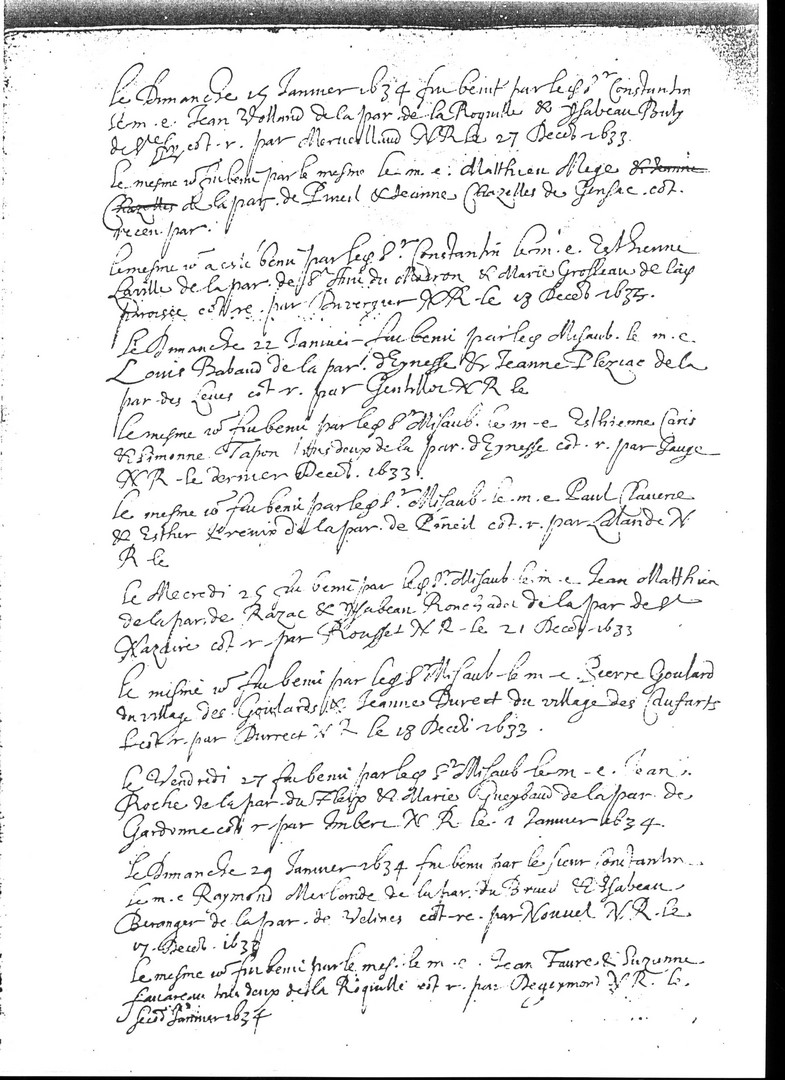 le Dimanche 15 Januier 1634 fut benit par led sr Constantin
le m. e. Jean Volland de la par. de la Roquille & Ysabeau Bouly
de cot. r. par NR le 27 Decēb 1633
le mesme jour fut beni par le mesme le m. e. Matthieu Mege
de la par. de Pineil & Jeanne Chazelles de Gensac. cot.
receu. par
le mesme jour a esté beni par led Sr Constantin le m. e. Esthienne
Laville de la par. de St du & Marie Grosleau de lad
paroisse cot re. par Duvergier NR le 18 Decēb 1633.
Le Dimanche 22 Januier fut beni par led Misaub. le m. e.
Louis Babaud de la par. d'Eynesse & Jeanne de la
par. des Leues cot. r. par Gentillot NR le
le mesme jour fut beni par led Sr Misaub. le m. e Esthienne Caris
& Simonne Tapon tous deux de la par. d'Eynesse cot. r. par Gauge
NR le dernier Decēb. 1633.
le mesme jour fut beni par led Sr Misaub. le. m. e Paul Clauerie
& Esther de la par. de Pineil cot. r. par Lalande N
R le
le Mecredi 25 fut beni par led Sr Misaub. le m. e Jean Matthieu
de la par. de Razac & Ysabeau de la par de St
Nazaire cot r. par Rousset NR le 21 Decēb 1633
le mesme jour fut beni par led Sr Misaub le m e Pierre Goulard
du village des Goulards & Jeanne Durect du village des
cot r. par Durrect NR le 18 Decēb 1633.
le Vendredi 27 fut beni par led Sr Misaub le m. e. Jean
Roche de la par. du Fleix & Marie Gueybaud de la par. de
Gardonne cot r par Imbert NR le. 1 Januier 1634.
le Dimanche 29 Januier 1634 fut beni par le sieur Constantin
le m. e Raymond Merlande de la par. du Brueil & Ysabeau
Beranger de la par. de Velines cot re. par Nouuel NR. le
17. Decēb. 1633
le mesme jour fut beni par le mes. le m. e. Jean Faure & Suzanne
tous deux de la Roquille cot r. par NR. le.
Januier 1634